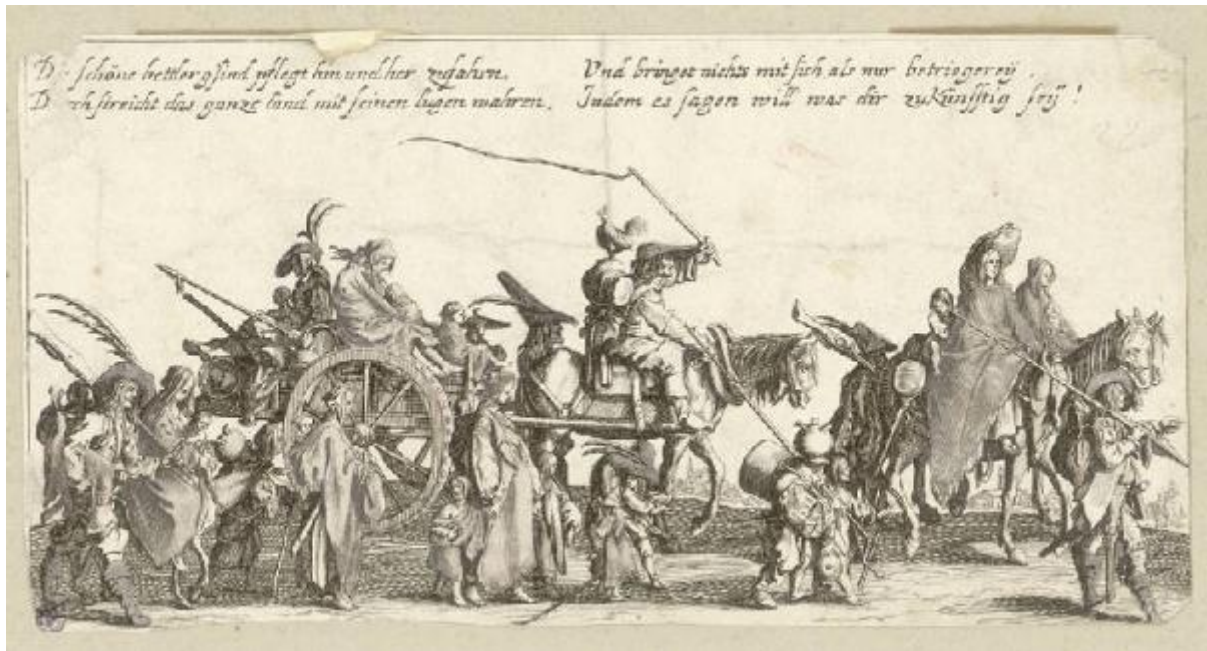 schöne bettler gsind pflegt hin und her zufahrn.
das gantze land mit seinen lugen wahren.
Vnd bringet nichts mit sich als nur betriegereij.
Indem es sagen will was dir zukünfftig seij!